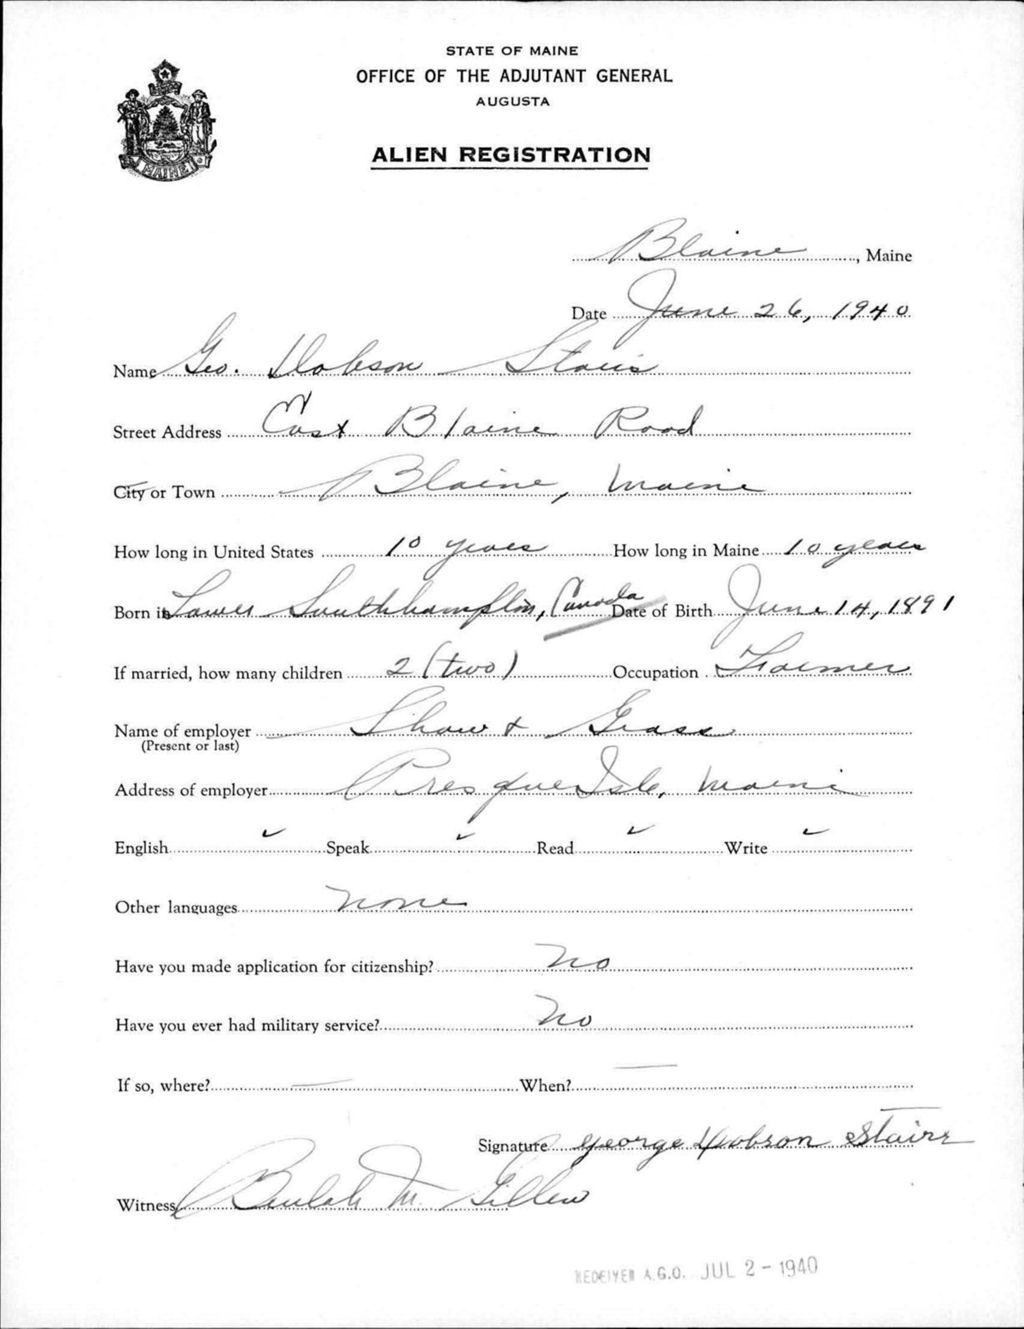 STATE OF MAINE
OFFICE OF THE ADJUTANT GENERAL
AUGUSTA
ALIEN REGISTRATION
MAINE
Blaine, Maine
Date June 26, 1940
Name Geo. Dobson Stairs
Street Address East Blaine Road
City or Town Blaine, Maine
How long in United States 10 years How long in Maine 10 years
Born in Lower Southhampton, Canada Date of Birth June 14, 1891
If married, how many children 2 (two) Occupation Farmer
Name of employer Shaw & Grass
(Present or last)
Address of employer Presque Isle, Maine
English ✓ Speak ✓ Read ✓ Write ✓
Other languages none
Have you made application for citizenship? No
Have you ever had military service? No
If so, where? — When? —
Signature George Dobson Stairs
Witness Beulah M.
RECEIVED A.G.O. JUL 2 - 1940